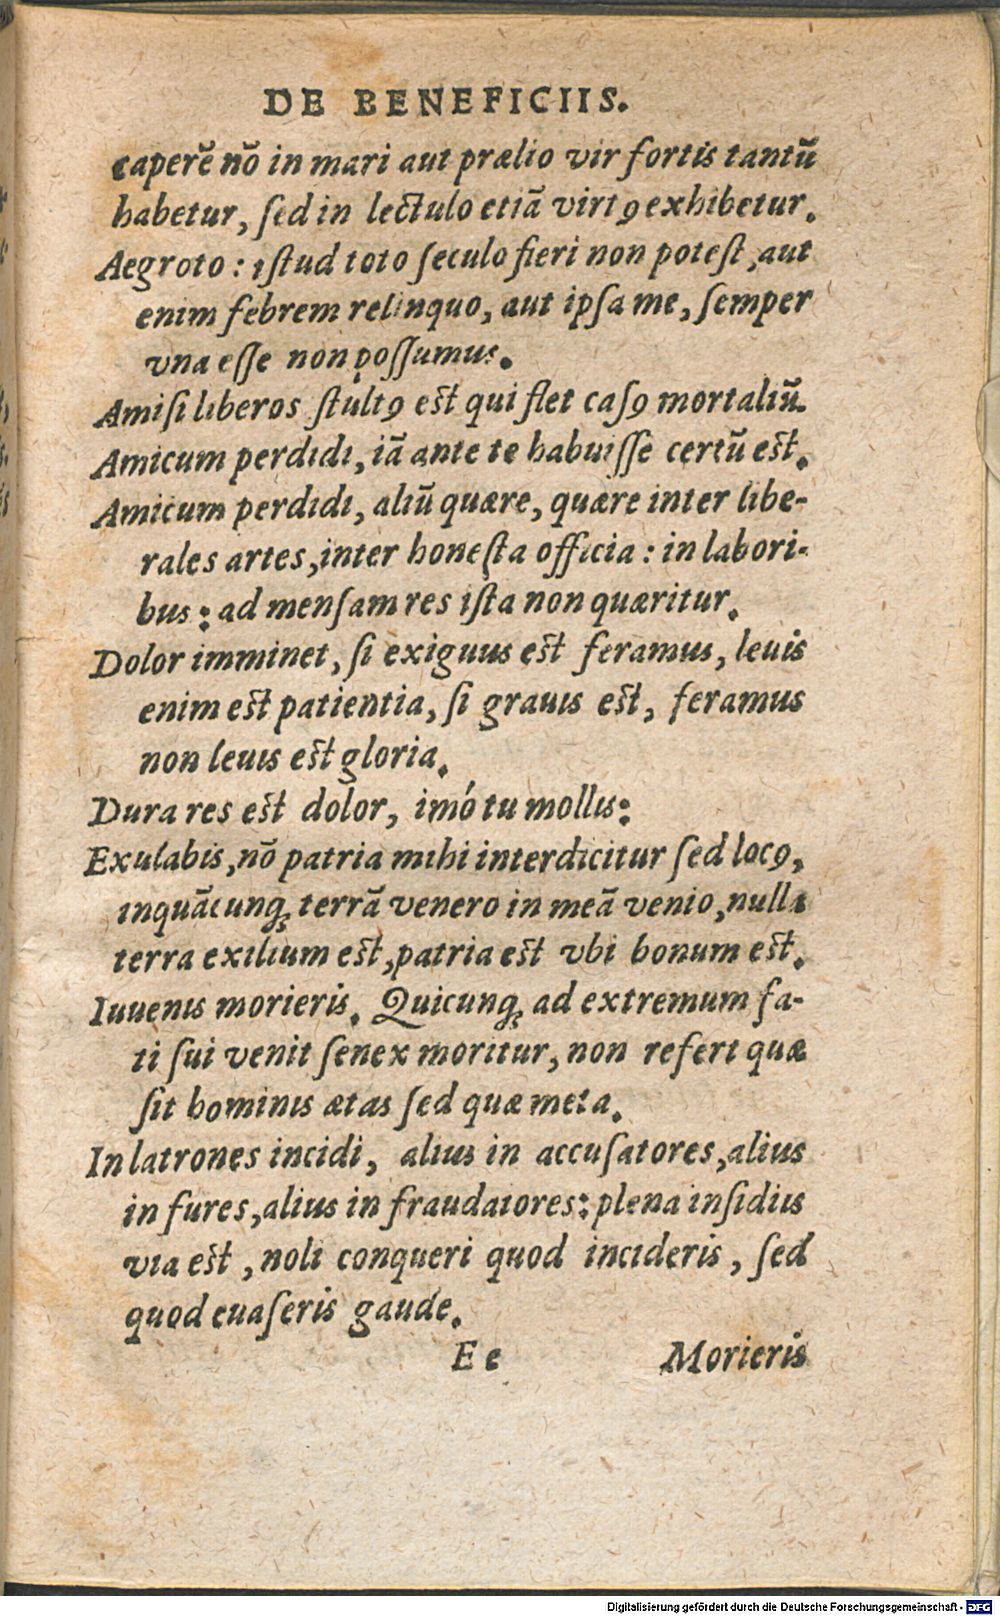 DE BENEFICIIS.
caperē nō in mari aut prælio vir fortis tantū
habetur, ſed in lectulo etiā virtꝰ exhibetur.
Aegroto: iſtud toto ſeculo fieri non poteſt, aut
enim febrem relinquo, aut ipſa me, ſemper
vna eſſe non poſſumus.
Amiſi liberos ſtultꝰ eſt qui flet caſꝰ mortaliū.
Amicum perdidi, iā ante te habuiſſe certū eſt.
Amicum perdidi, aliū quære, quære inter libe-
rales artes, inter honeſta officia: in labori-
bus: ad menſam res iſta non quæritur.
Dolor imminet, ſi exiguus eſt feramus, leuis
enim eſt patientia, ſi grauis eſt, feramus
non leuis eſt gloria.
Dura res eſt dolor, imó tu mollis:
Exulabis, nō patria mihi interdicitur ſed locꝰ,
inquācunq; terrā venero in meā venio, nulla
terra exilium eſt, patria eſt vbi bonum eſt.
Iuuenis morieris. Quicunq; ad extremum fa-
ti ſui venit ſenex moritur, non refert quæ
ſit hominis ætas ſed quæ meta.
In latrones incidi, alius in accuſatores, alius
in fures, alius in fraudatores: plena inſidiis
via eſt, noli conqueri quod incideris, ſed
quod euaſeris gaude.
E e Morieris
Digitalisierung gefördert durch die Deutsche Forschungsgemeinschaft - DFG